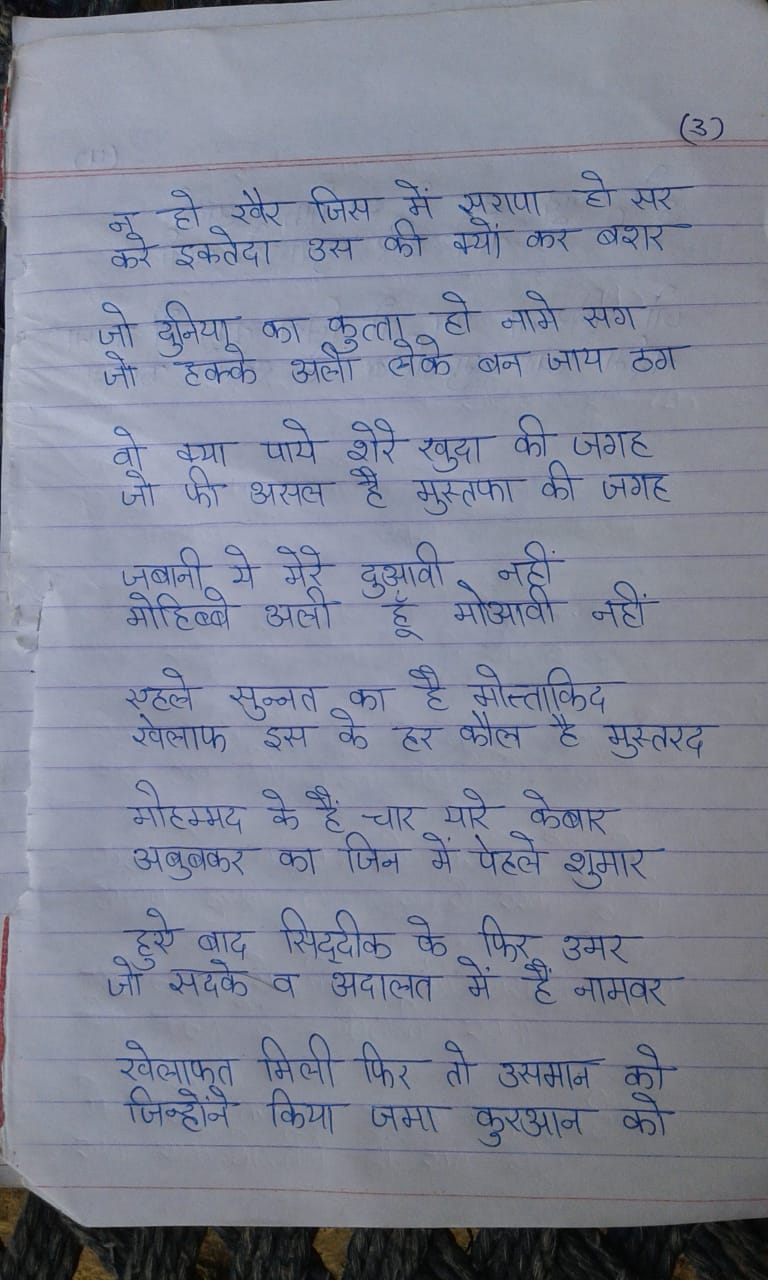 (3)
न हो खैर जिस में सरापा हो सर
करे इकतेदा उस की क्यों कर बशर
जो दुनिया का कुत्ता हो नामे सग
जो हक्के अली लेके बन जाय ठग
वो क्या पाये शेरे खुदा की जगह
जो फी असल है मुस्तफा की जगह
जबानी ये मेरे दुआवी नहीं
मोहिब्बे अली हूँ मोआवी नहीं
एहले सुन्नत का है मोस्ताकिद
खेलाफ इस के हर कौल है मुस्तरद
मोहम्मद के हैं चार यारे केबार
अबुबकर का जिन में पेहले शुमार
हुऐ बाद सिद्दीक के फिर उमर
जो सदके व अदालत में हैं नामवर
खेलाफत मिली फिर तो उसमान को
जिन्होंने किया जमा कुरआन को